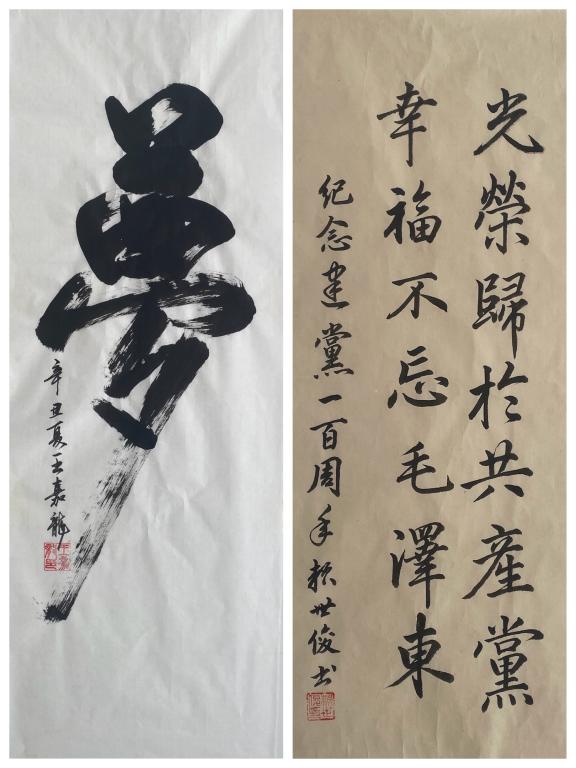 夢
辛丑夏王嘉龍
光榮歸於共產黨
幸福不忘毛澤東
紀念建黨一百周年賴世俊书